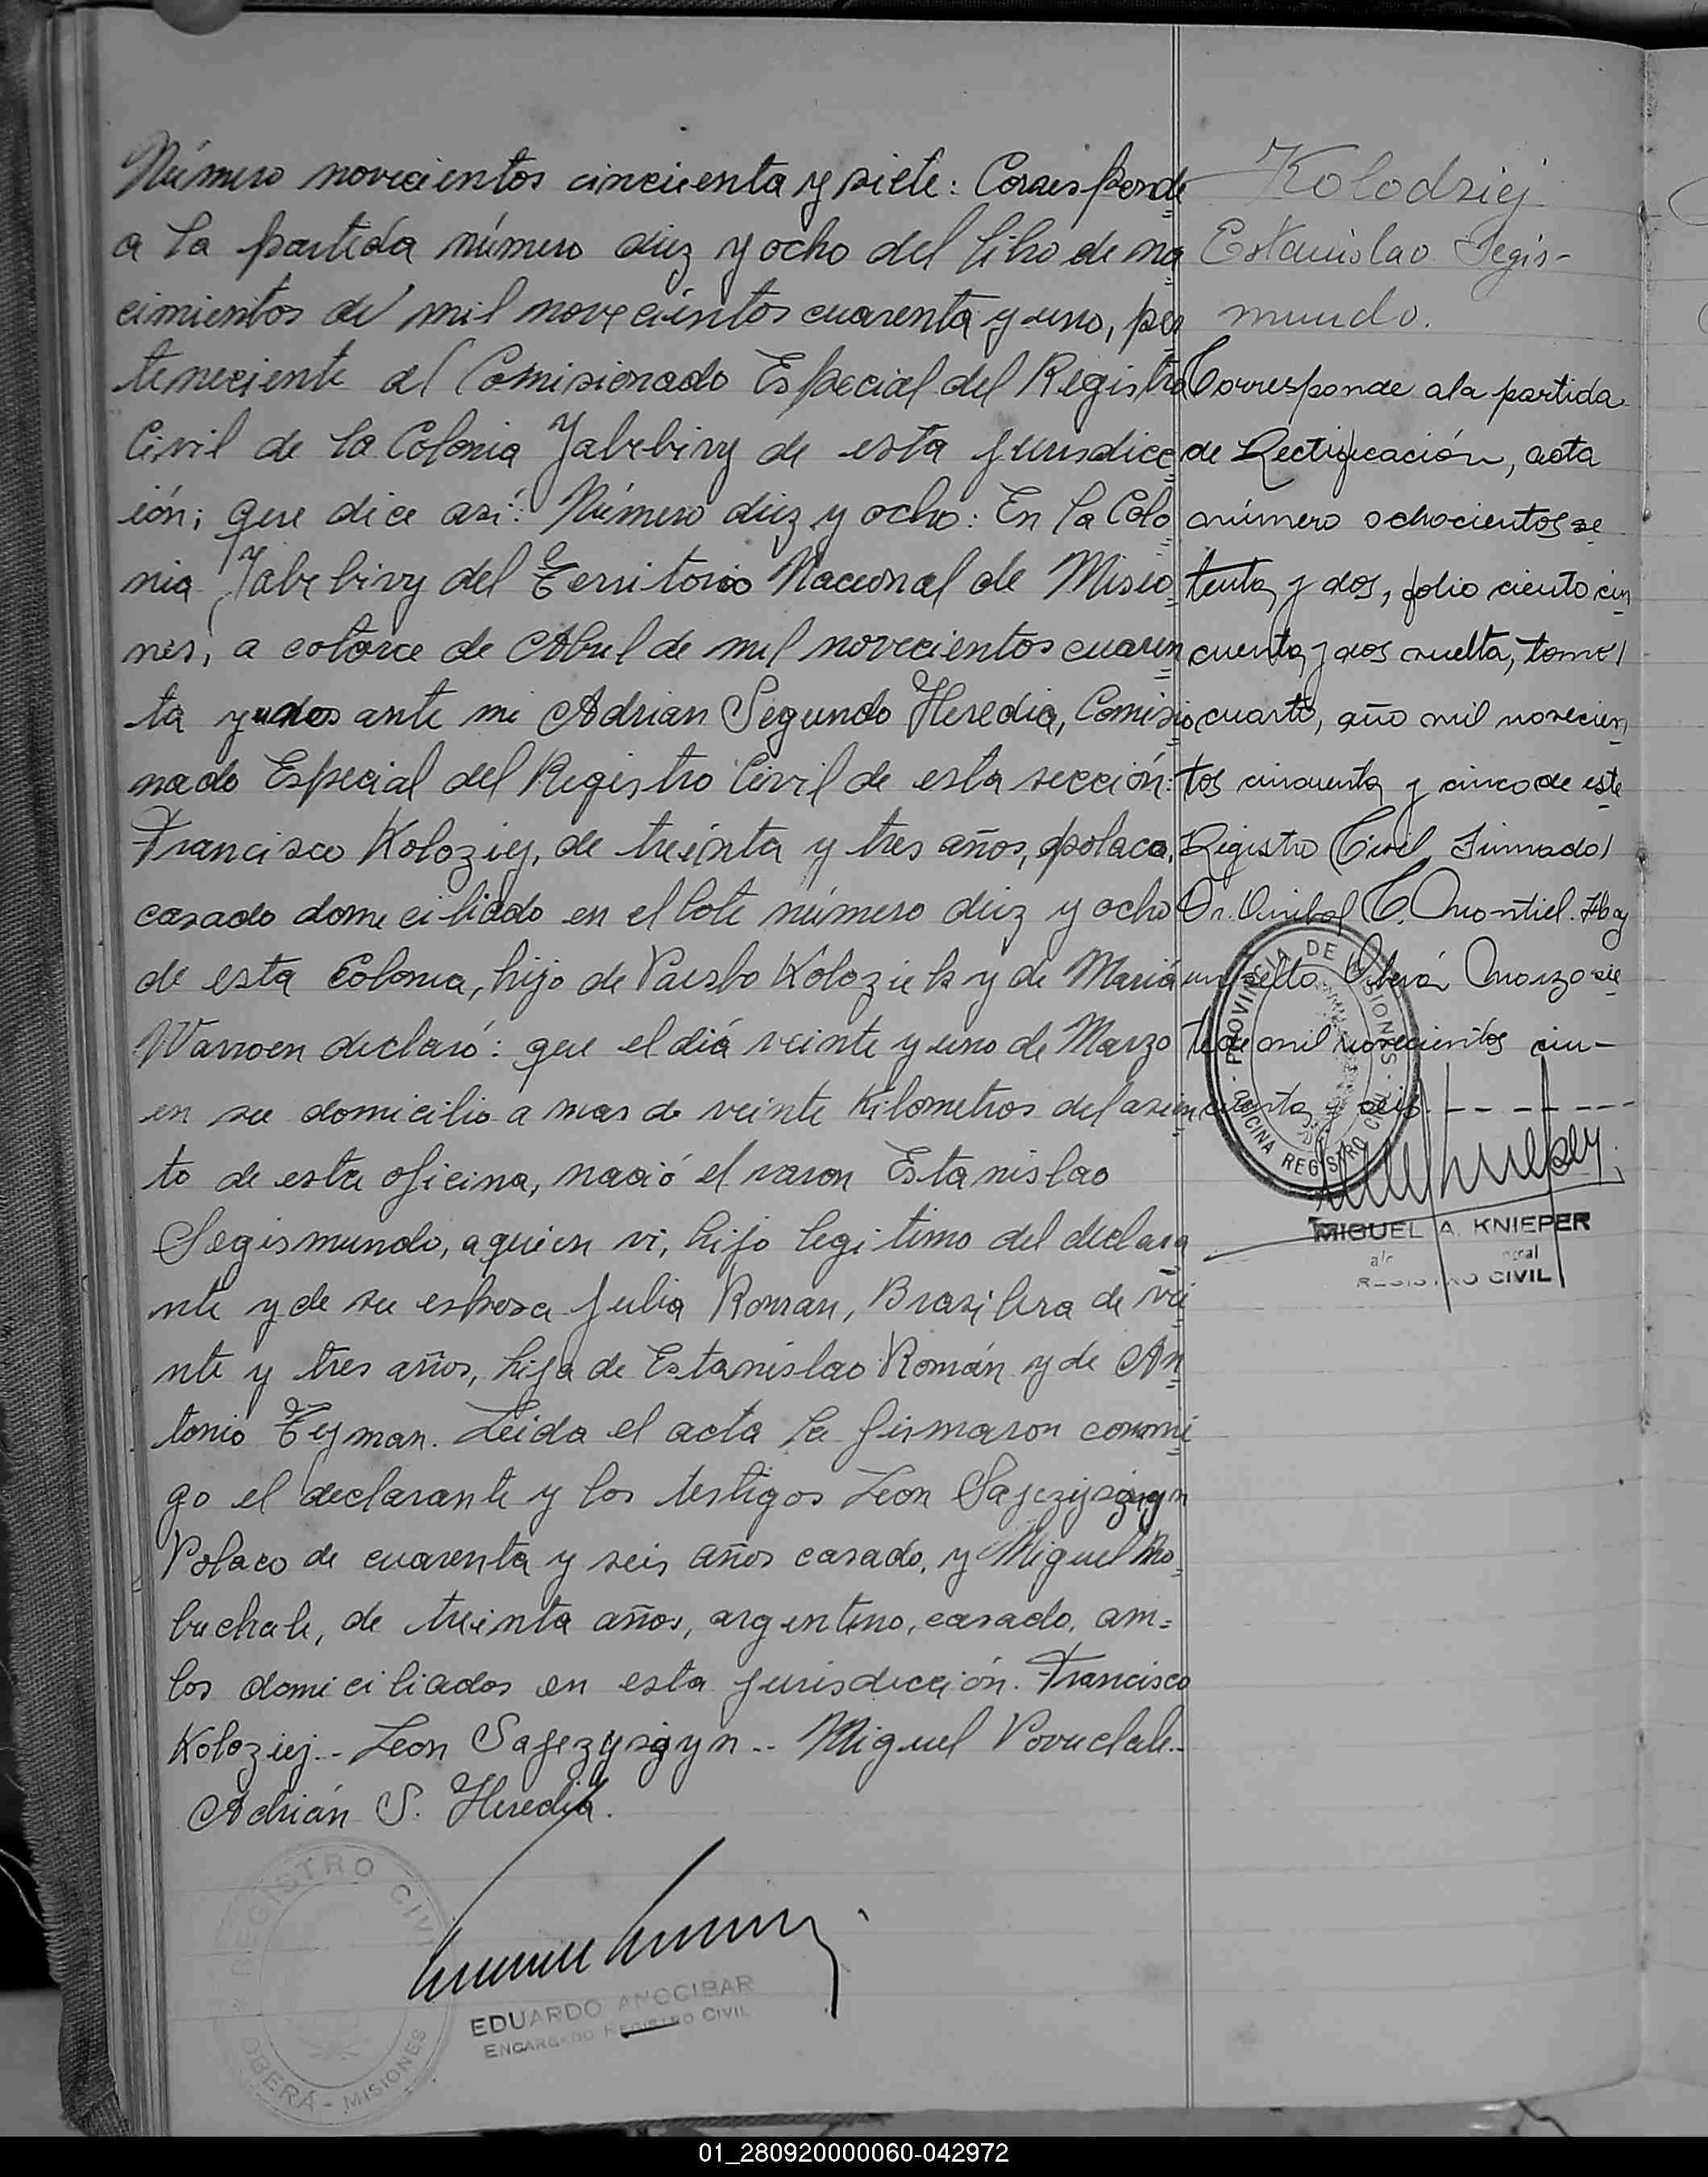 Número novecientos cincuenta y siete: Corresponde
a la partida número diez y ocho del libro de na
cimientos de mil novecientos cuarenta y uno, per
teneciente al Comisionado Especial del Registro
Civil de la Colonia Yabebiry de esta jurisdicc
ión; que dice así: Número diez y ocho: En la Colo
nia Yabebiry del Territorio Nacional de Misio
nes, a catorce de Abril de mil novecientos cuaren
ta y dos ante mi Adrian Segundo Heredia, Comisio
nado Especial del Registro Civil de esta sección:
Francisco Koloziej, de treinta y tres años, polaco,
casado domiciliado en el lote número diez y ocho
de esta Colonia, hijo de Kolozieh y de Maria
Warroen declaró: que el diá veinte y uno de Marzo
en su domicilio a mas de veinte Kilometros del asien
to de esta oficina, nació el varon Estanislao
Segismundo, a quien vi, hijo legitimo del declara
nte y de su esposa Julia Roman, Brasilera de vei
nte y tres años, hija de Estanislao Román y de An
tonio Teyman. Leida el acta la firmaron conmi
go el declarante y los testigos Leon
Polaco de cuarenta y seis años casado, y Miguel
de treinta años, argentino, casado, am=
bos domiciliados en esta jurisdicción. Francisco
Koloziej.- Leon Sajezysgyn.- Miguel
Adrián S. Heredia.
REGISTRO CIVIL
OBERÁ - MISIONES
EDUARDO ANOCIBAR
ENCARGADO REGISTRO CIVIL
Kolodziej
Estanislao Segis-
mundo.
Corresponde a la partida
de Rectificación, acta
número ochocientos se
tenta y dos, folio ciento cin
cuenta y dos vuelta, tomo
cuarto, año mil novecien
tos cincuenta y cinco de este
Registro Civil Firmado
Dr. Anibal C. Montiel. Hay
un sello Oberá Marzo sie
te de mil novecientos cin-
cuenta y seis.
PROVINCIA DE MISIONES
OFICINA REGISTRO CIVIL
MIGUEL A. KNIEPER
REGISTRO CIVIL
01_280920000060-042972